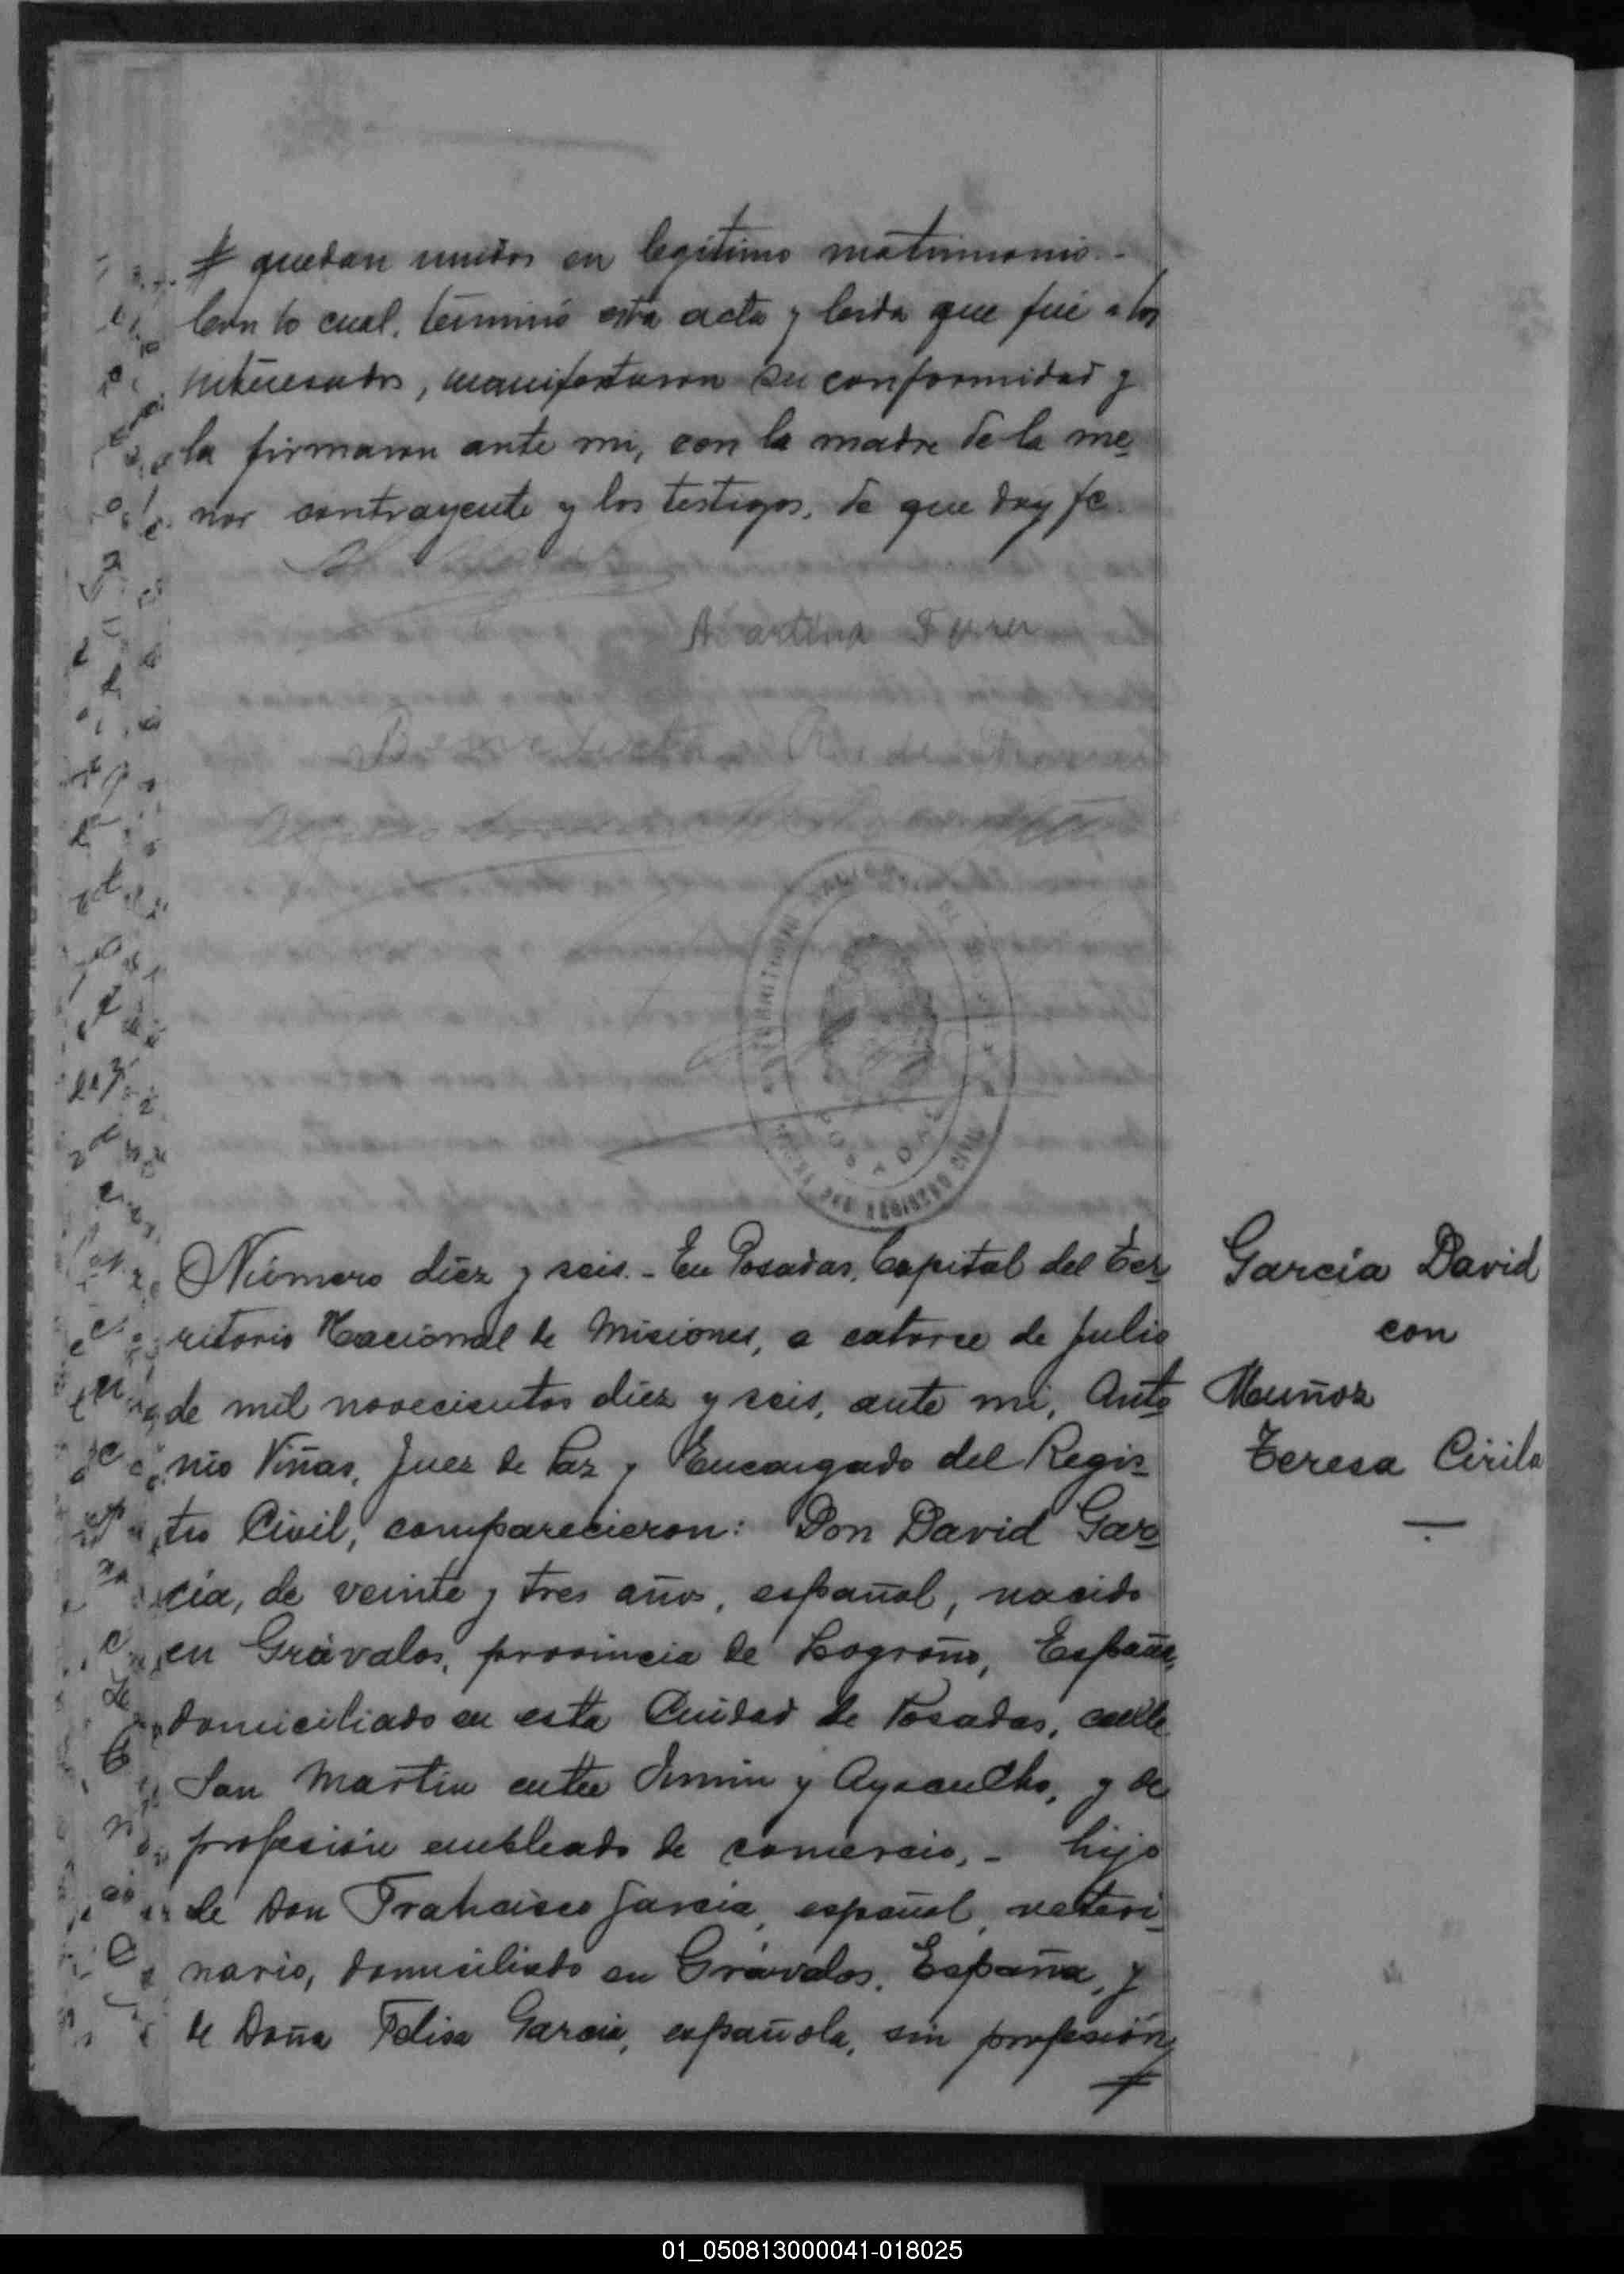 # quedan unidos en legítimo matrimonio.-
Con lo cual, terminó esta acta y leida que fué a los
interesados, manifestaron su conformidad y
la firmaron ante mi, con la madre de la me-
nor contrayente y los testigos, de que doy fe.
Martina
POSADAS
REGISTRO CIVIL
Número diez y seis.- En Posadas, Capital del Ter-
ritorio Nacional de Misiones, a catorce de Julio
de mil novecientos diez y seis, ante mi, Anto-
nio Viñas, Juez de Paz y Encargado del Regis-
tro Civil, comparecieron: Don David Gar-
cía, de veinte y tres años, español, nacido
en Grávalos, provincia de Logroño, España,
domiciliado en esta Ciudad de Posadas, calle
San Martin entre Junin y Ayacucho, y de
profesión empleado de comercio,- hijo
de Don Francisco García, español, veteri-
nario, domiciliado en Grávalos, España, y
de Doña Felisa Garcia, española, sin profesión,
#
García David
con
Muñoz
Teresa Cirila
01_050813000041-018025